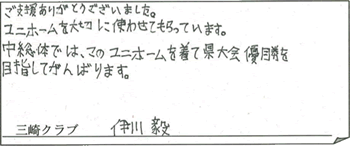 ご支援ありがとうございました。
ユニホームを大切に使わせてもらっています。
中総体では、このユニホームを着て県大会優勝を
目指してがんばります。
三崎クラブ 伊川 毅